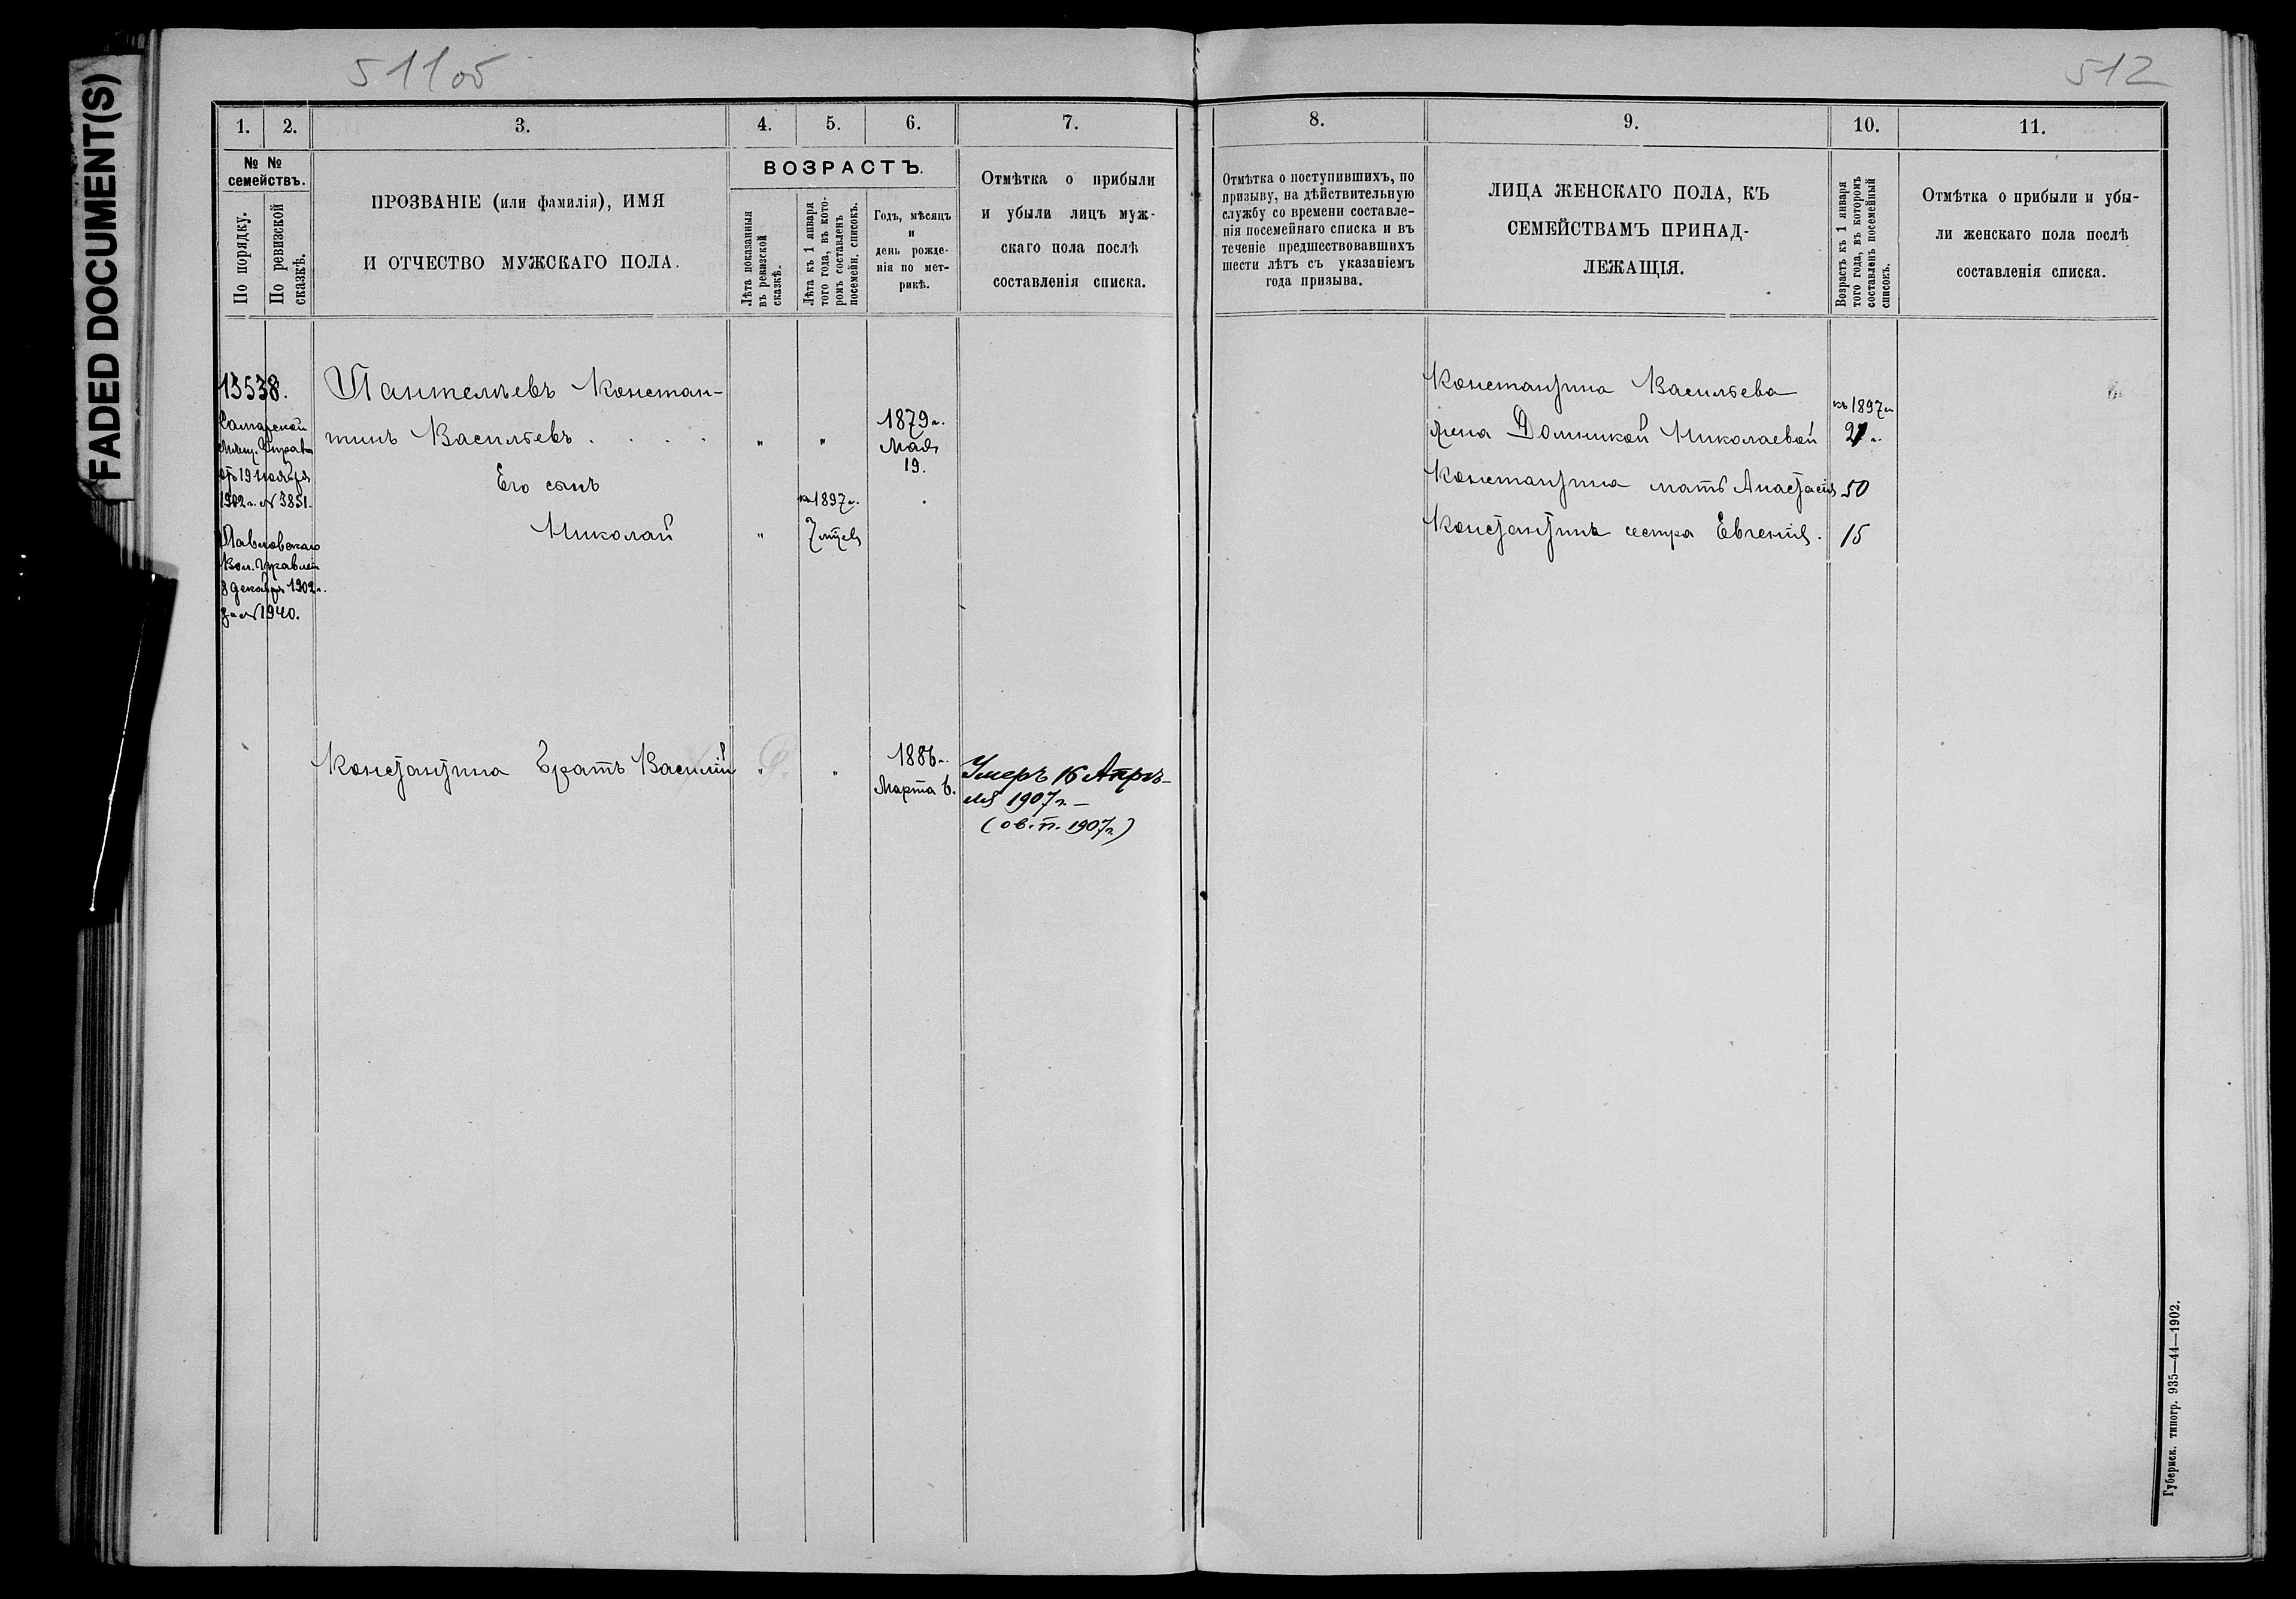 FADED DOCUMENT(S)
511об
512
1.
2.
3.
4.
5.
6.
7.
8.
9.
10.
11.
№ №
семействъ.
По порядку.
По ревизской
сказкѣ.
ПРОЗВАНІЕ (или фамилія), ИМЯ
И ОТЧЕСТВО МУЖСКАГО ПОЛА.
ВОЗРАСТЪ.
Лѣта показанныя
въ ревизской
сказкѣ.
Лѣта къ 1 января
того года, въ кото-
ромъ составленъ
посемейн. списокъ.
Годъ, мѣсяцъ
и
день рожде-
нія по мет-
рикѣ.
Отмѣтка о прибыли
и убыли лицъ муж-
скаго пола послѣ
составленія списка.
Отмѣтка о поступившихъ, по
призыву, на дѣйствительную
службу со времени составле-
нія посемейнаго списка и въ
теченіе предшествовавшихъ
шести лѣтъ съ указаніемъ
года призыва.
ЛИЦА ЖЕНСКАГО ПОЛА, КЪ
СЕМЕЙСТВАМЪ ПРИНАД-
ЛЕЖАЩІЯ.
Возрастъ къ 1 января
того года, въ которомъ
составленъ посемейный
списокъ.
Отмѣтка о прибыли и убы-
ли женскаго пола послѣ
составленія списка.
13538.
Самарской
Мѣщ. Управы
отъ 19 ноября
1902 г. № 3851.
Павловскаго
Вол. Правлен
3 декабря 1902 г.
за № 1940.
Пантелѣевъ Констан-
тинъ Васильевъ . . . . " "
1879 г.
Мая
19.
Его сынъ
Николай "
къ 1897 г.
7 мѣсяц
Константина братъ Василій " "
1886 г.
Марта 6.
Умеръ 16 Апрѣ-
ля 1907 г. —
(ов. п. 1907 г.)
Константина Васильева
жена Домникой Николаевой
къ 1897 г.
21 г.
Константина мать Анастасія 50
Константина сестра Евгенія. 15
Губернск. типогр. 935—44—1902.